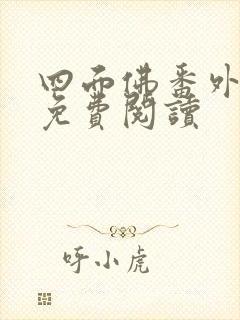 四面佛番外
免費閱讀
呼小虎